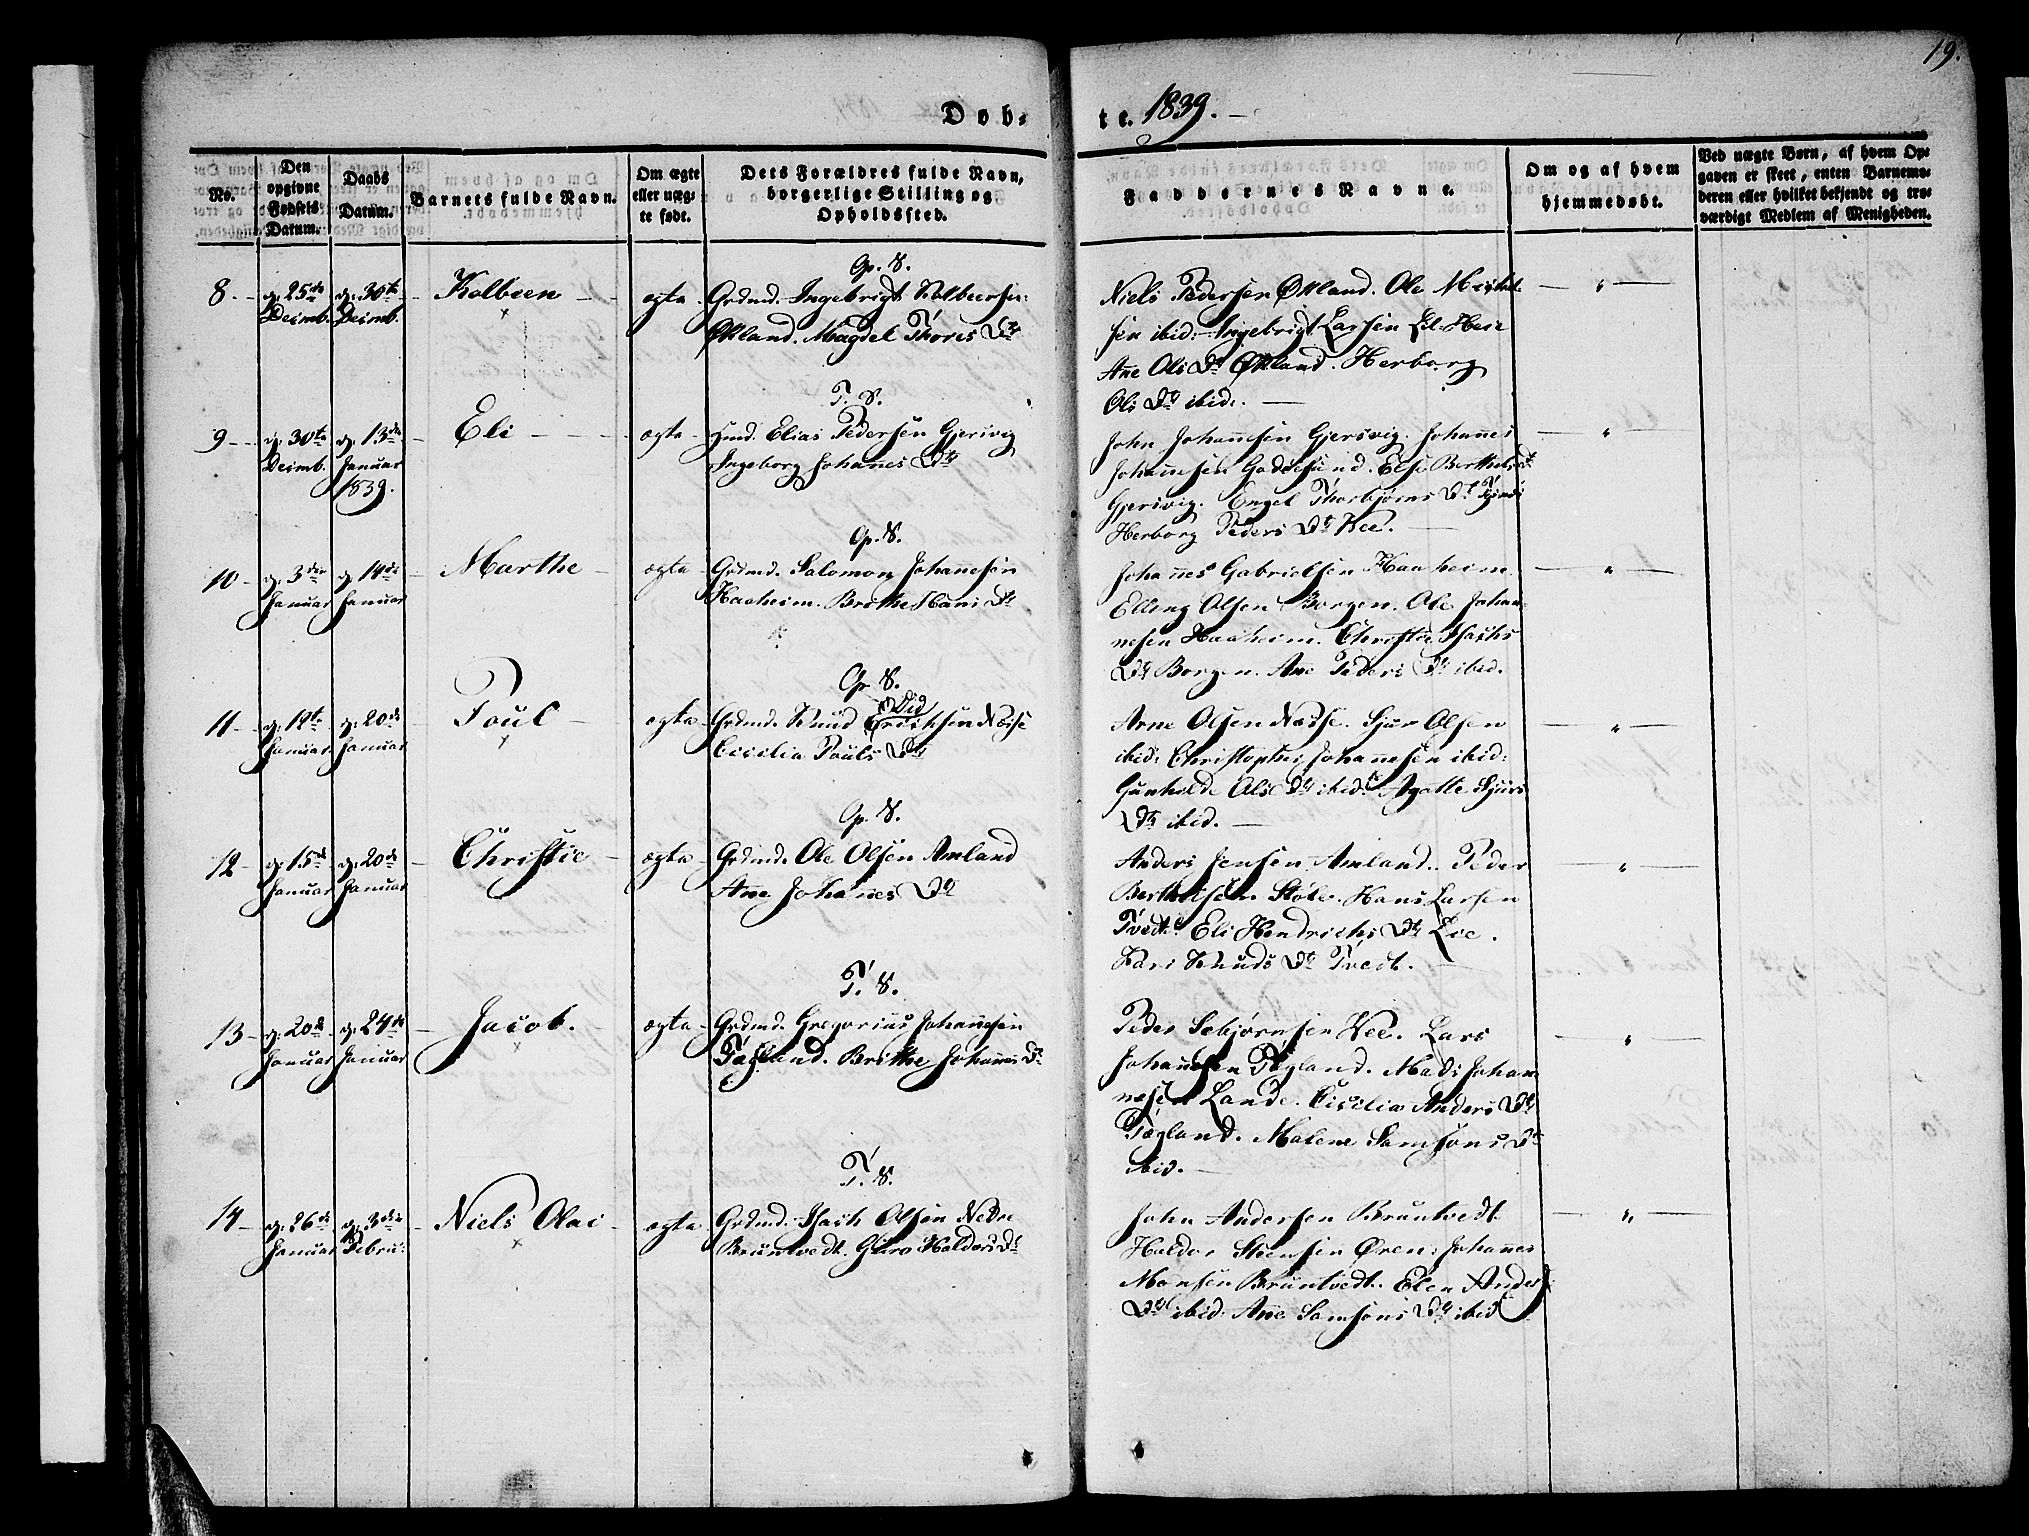 19.
Døb-
te. 1839.
No.
Den
opgivne
Fødsels
Datum.
Daabs
Datum.
Barnets fulde Navn.
Om ægte
eller uæg-
te født.
Dets Forældres fulde Navn,
borgerlige Stilling og
Opholdssted.
Faddernes Navne.
Om og af hvem
hjemmedøbt.
Ved uægte Børn, af hvem Op-
gaven er skeet, enten Barnemo-
deren eller hvilket bekjendt og tro-
værdigt Medlem af Menigheden.
8. d. 25de Decmb. d. 30te Decmb. Kolbeen ægte
Op. S.
Grdmd. Ingebrigt Kolbeensen
Økland. Magdel Thores Dtr
Niels Pedersen Økland. Ole Michel-
sen ibid. Ingebrigt Larsen
Ane Ols Dtr Økland. Herborg
Ols Dtr ibid.
9 d. 30te Decmb. d. 13de Januar 1839. Eli ægte
T. S.
Hmd. Elias Pedersen Gjersvig
Ingeborg Johanes Dtr
John Johannesen Gjersvig. Johannes
Johannesen Godøesund. Else Berthels Dtr
Gjersvig. Engel Thorbjørns Dtr
Herborg Peders Dtr Vee.
10 d. 3die Januar d. 14de Januar Marthe ægte
Op. S.
Grdmd. Salomon Johanesen
Haaheim. Brithe Hans Dtr
Johannes Gabrielsen Haaheim
Elling Olsen Borgen. Ole Johan-
nesen Haaheim. Christie Isachs
Dtr Borgen. Ane Peders Dtr ibid.
11 d. 12te Januar d. 20de Januar Poul ægte
Op. S.
Grdmd. Knud Erichsen Næsse
Cicilia Pouls Dtr
Arne Olsen Næsse. Sjur Olsen
ibid: Christopher Johannesen ibid:
Gunhilde Ols Dtr ibid. Agatte Sjurs
Dtr ibid.
12 d. 15de Januar d. 20de Januar Christie ægte
Op. S.
Grdmd. Ole Olsen Amland
Ane Johanes Dtr
Anders Jensen Amland. Peder
Berthelsen Støle. Hans Larsen
Tvedt. Eli Hendrichs Dtr Lie.
Kari Knuds Dtr Tvedt.
13 d. 20de Januar d. 24de Januar Jacob. ægte
T. S.
Grdmd. Gregorius Johanesen
Tøgland. Brithe Johannes Dtr
Peder Sebjørnsen Vee. Lars
Johannesen Tøgland. Mads Johan-
nesen Lande. Cicilia Anders Dtr
Tøgland. Malene Samsons Dtr
ibid.
14 d. 26de Januar d. 3die Febru: Niels Olai ægte
T. S.
Grdmd. Isach Olsen Nedre
Bruntvedt. Guro Haldors Dtr
John Andersen Bruntvedt
Haldor Steensen Øren: Johannes
Monsen Bruntvedt. Elen Anders
Dtr ibid: Ane Samsons Dtr ibid